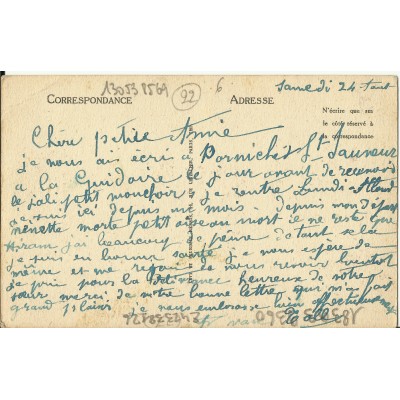 13053 8569
92
6
Samedi 24
CORRESPONDANCE
ADRESSE
N'écrire que sur
le côté réservé à
la correspondance
Chère petite Amie
je vous ai écrit a Pornichet St Sauveur
a la Guidoire le jour avant de recevoir
le joli petit mouchoir je rentre Lundi
ici depuis un mois depuis mon départ
minette morte petit oiseau mort il ne reste que
j'ai beaucoup de peine de tout cela
je suis en bonne santé je vous espère de
même et me réjoui de vous revoir bientôt
je prie pour la heureux de votre
sœur merci de votre bonne lettre qui m'a fait
grand plaisir je vous embrasse bien affectueusement